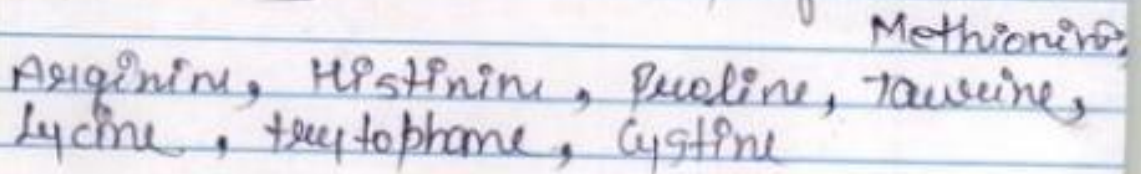 Methionine,
Arginine, Histinine, Proline, Taurine,
Lycine, tryptophane, Cystine